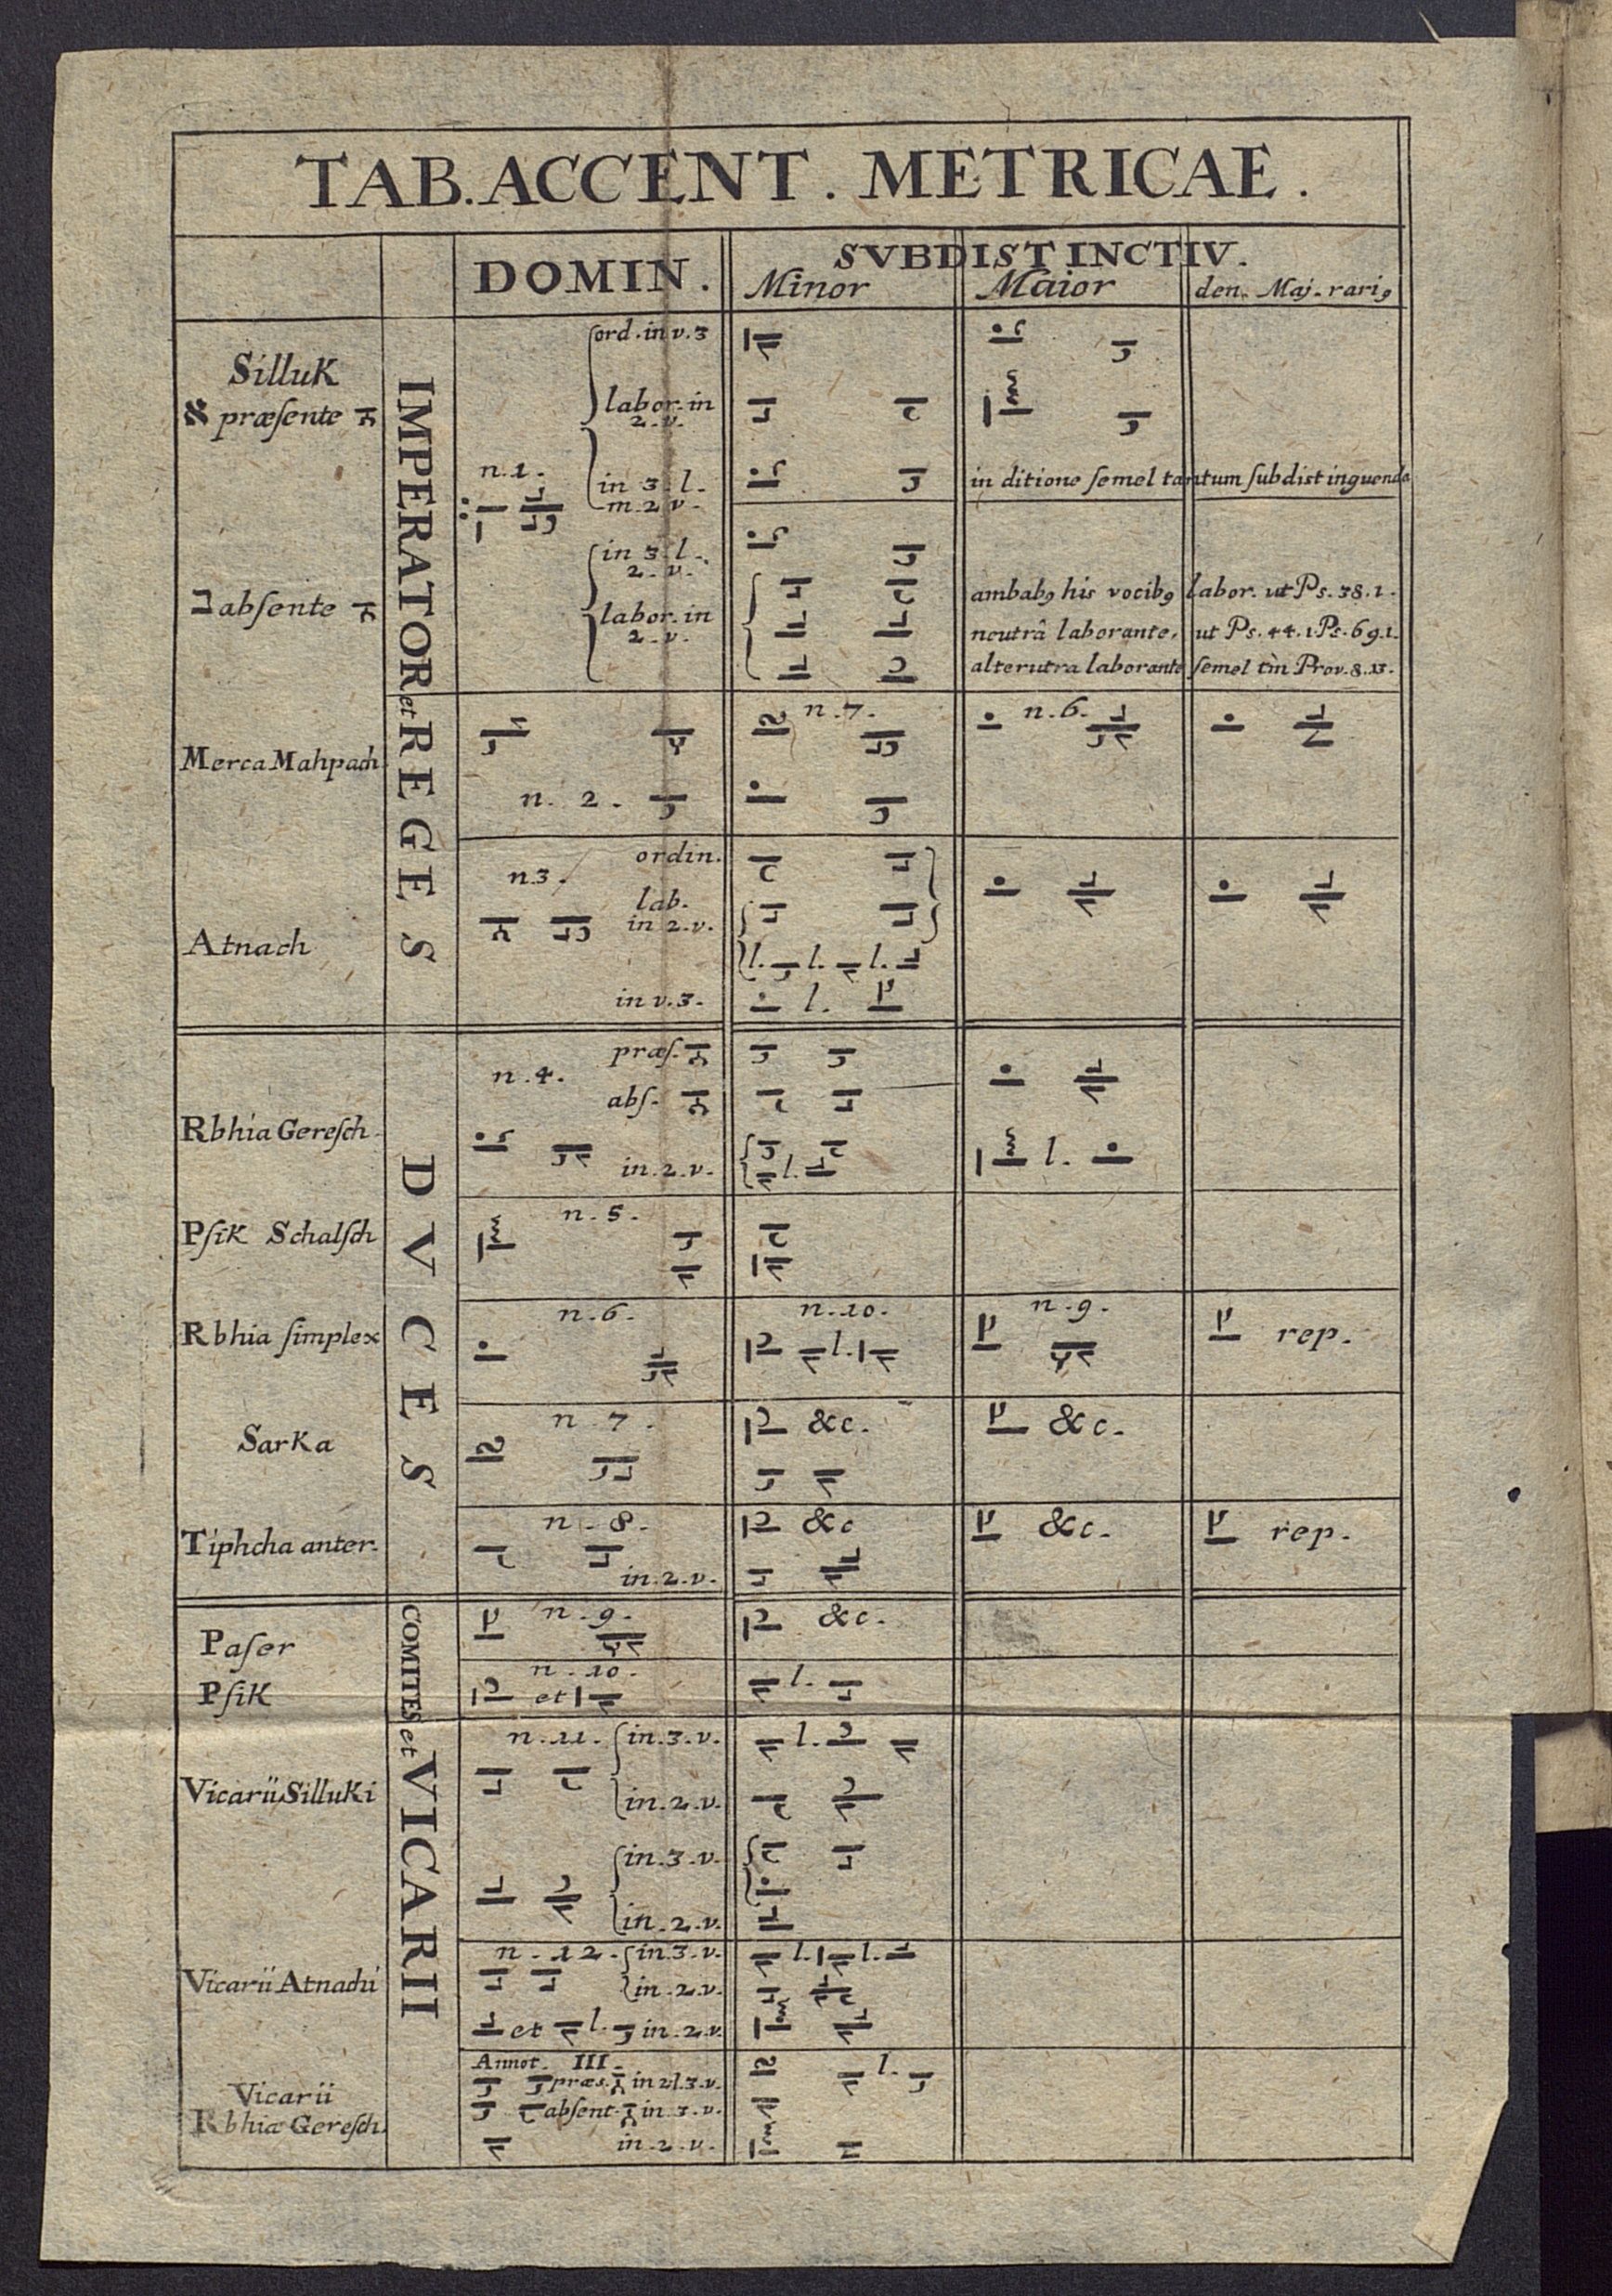 TAB. ACCENT. METRICAE.
DOMIN.
SVBDISTINCTIV.
Minor
Maior
den. Maj. rari9
IMPERATOR et REGES
Silluk
א præſente
ord. in v. 3
labor. in
2. v.
n. 1.
in 3. l.
m. 2 v.
in ditione ſemel tantum ſubdistinguenda
ב abſente
in 3. l.
2. v.
labor. in
2. v.
ambab9 his vocib9 labor. ut Ps. 38. 1.
neutrâ laborante, ut Ps. 44. 1. Ps. 69. 1.
alterutra laborante ſemel tm̃ Prov. 8. 13.
Merca Mahpach
n. 2.
n. 7.
n. 6.
Atnach
ordin.
n 3.
lab.
in 2. v.
l. l. l.
in v. 3.
l.
DVCES
Rbhia Gereſch.
præſ.
n. 4.
abſ.
in. 2. v.
l.
l.
Pſik Schalſch
n. 5.
Rbhia ſimplex
n. 6.
n. 10.
l.
n. 9.
rep.
Sarka
n. 7.
&c.
&c.
Tiphcha anter.
n. 8.
in. 2. v.
&c
&c.
rep.
COMITES et VICARII
Paſer
n. 9.
&c.
Pſik
n. 10.
et
l.
Vicarii Silluki
n. 11.
in. 3. v.
in. 2. v.
l.
in. 3. v.
in. 2. v.
Vicarii Atnachi
n. 12.
in. 3. v.
in. 2. v.
l. l.
et l. in. 2. v.
Vicarii
Rbhiæ Gereſch.
Annot. III.
præs. in 2 l. 3. v.
abſent. in. 3. v.
in. 2. v.
l.